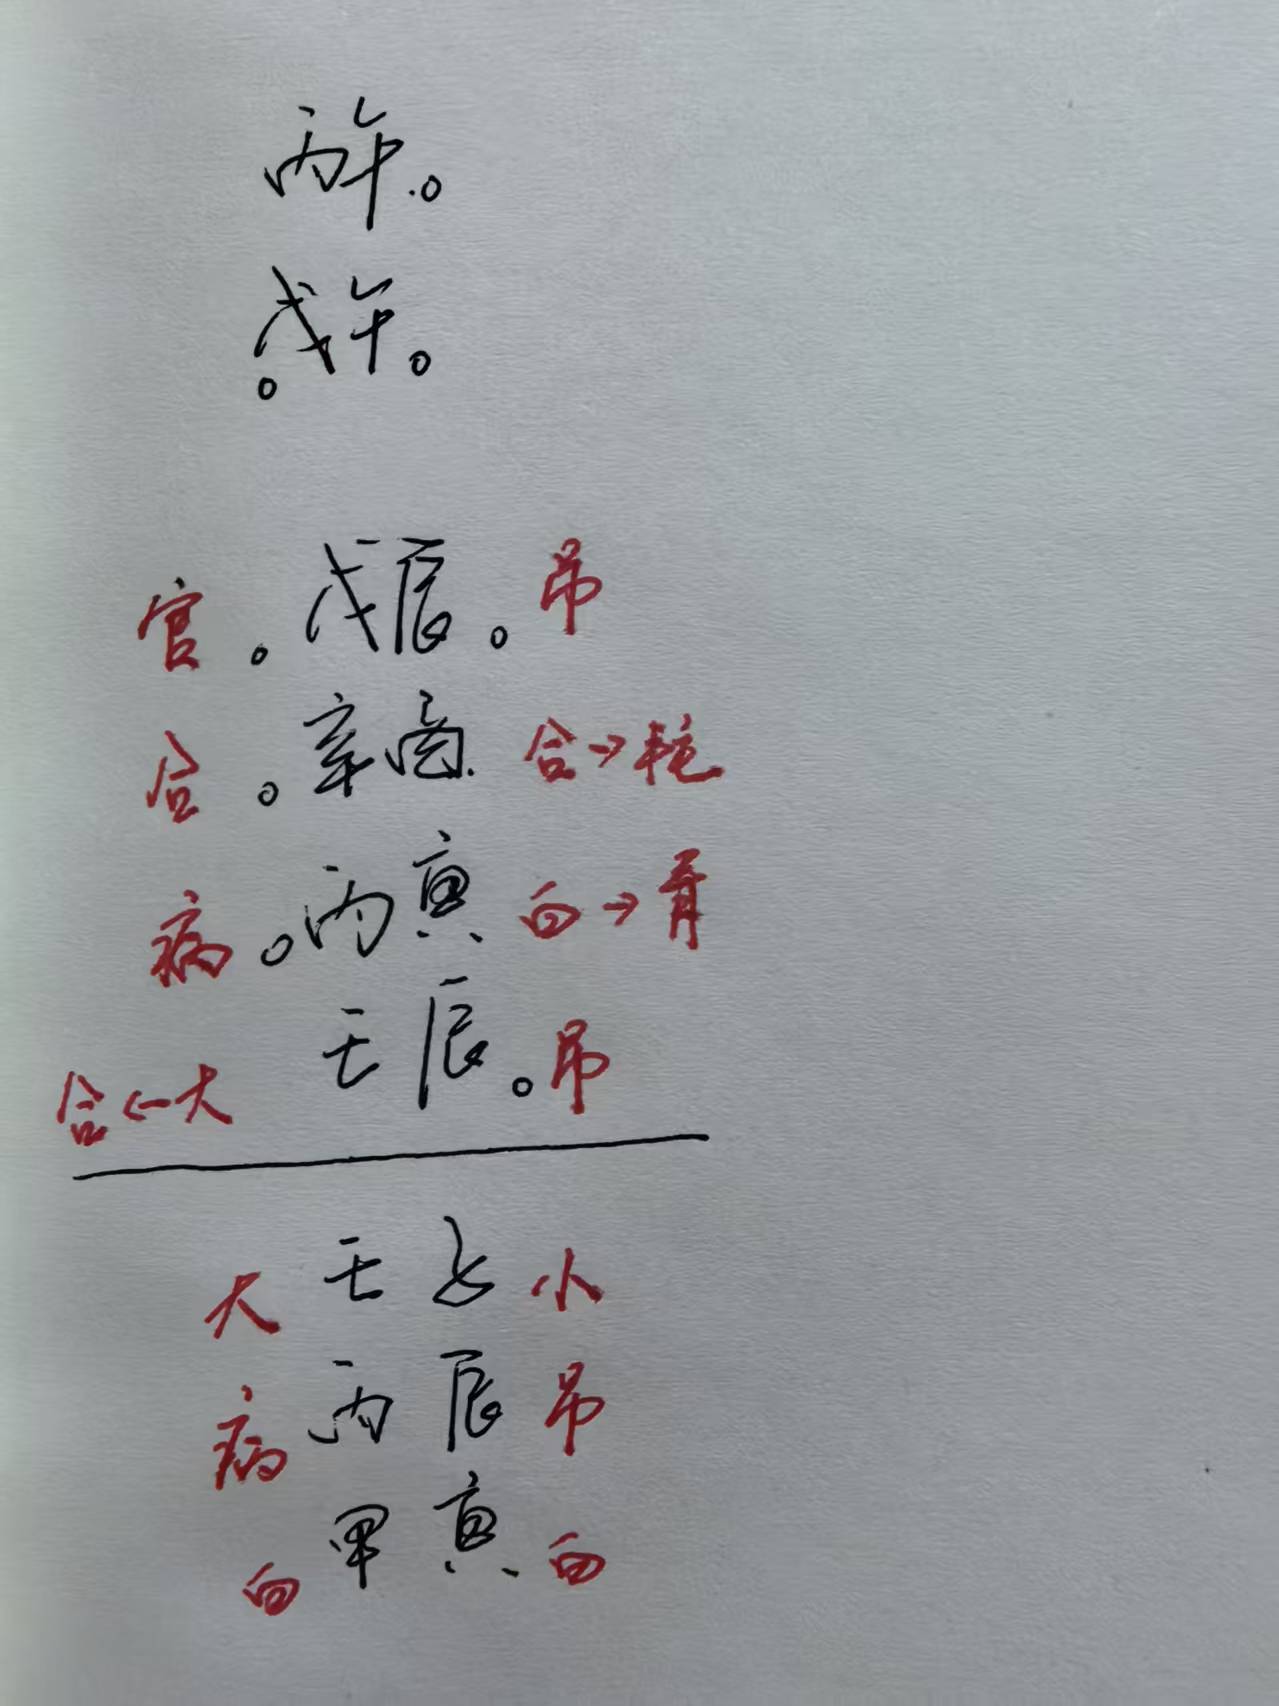 丙午。
戊午。
官。戊辰。吊
合。辛酉 合→耗
病。丙寅 白→青
合←大 壬辰。吊
大 壬子 小
病 丙辰 吊
白 甲寅 白